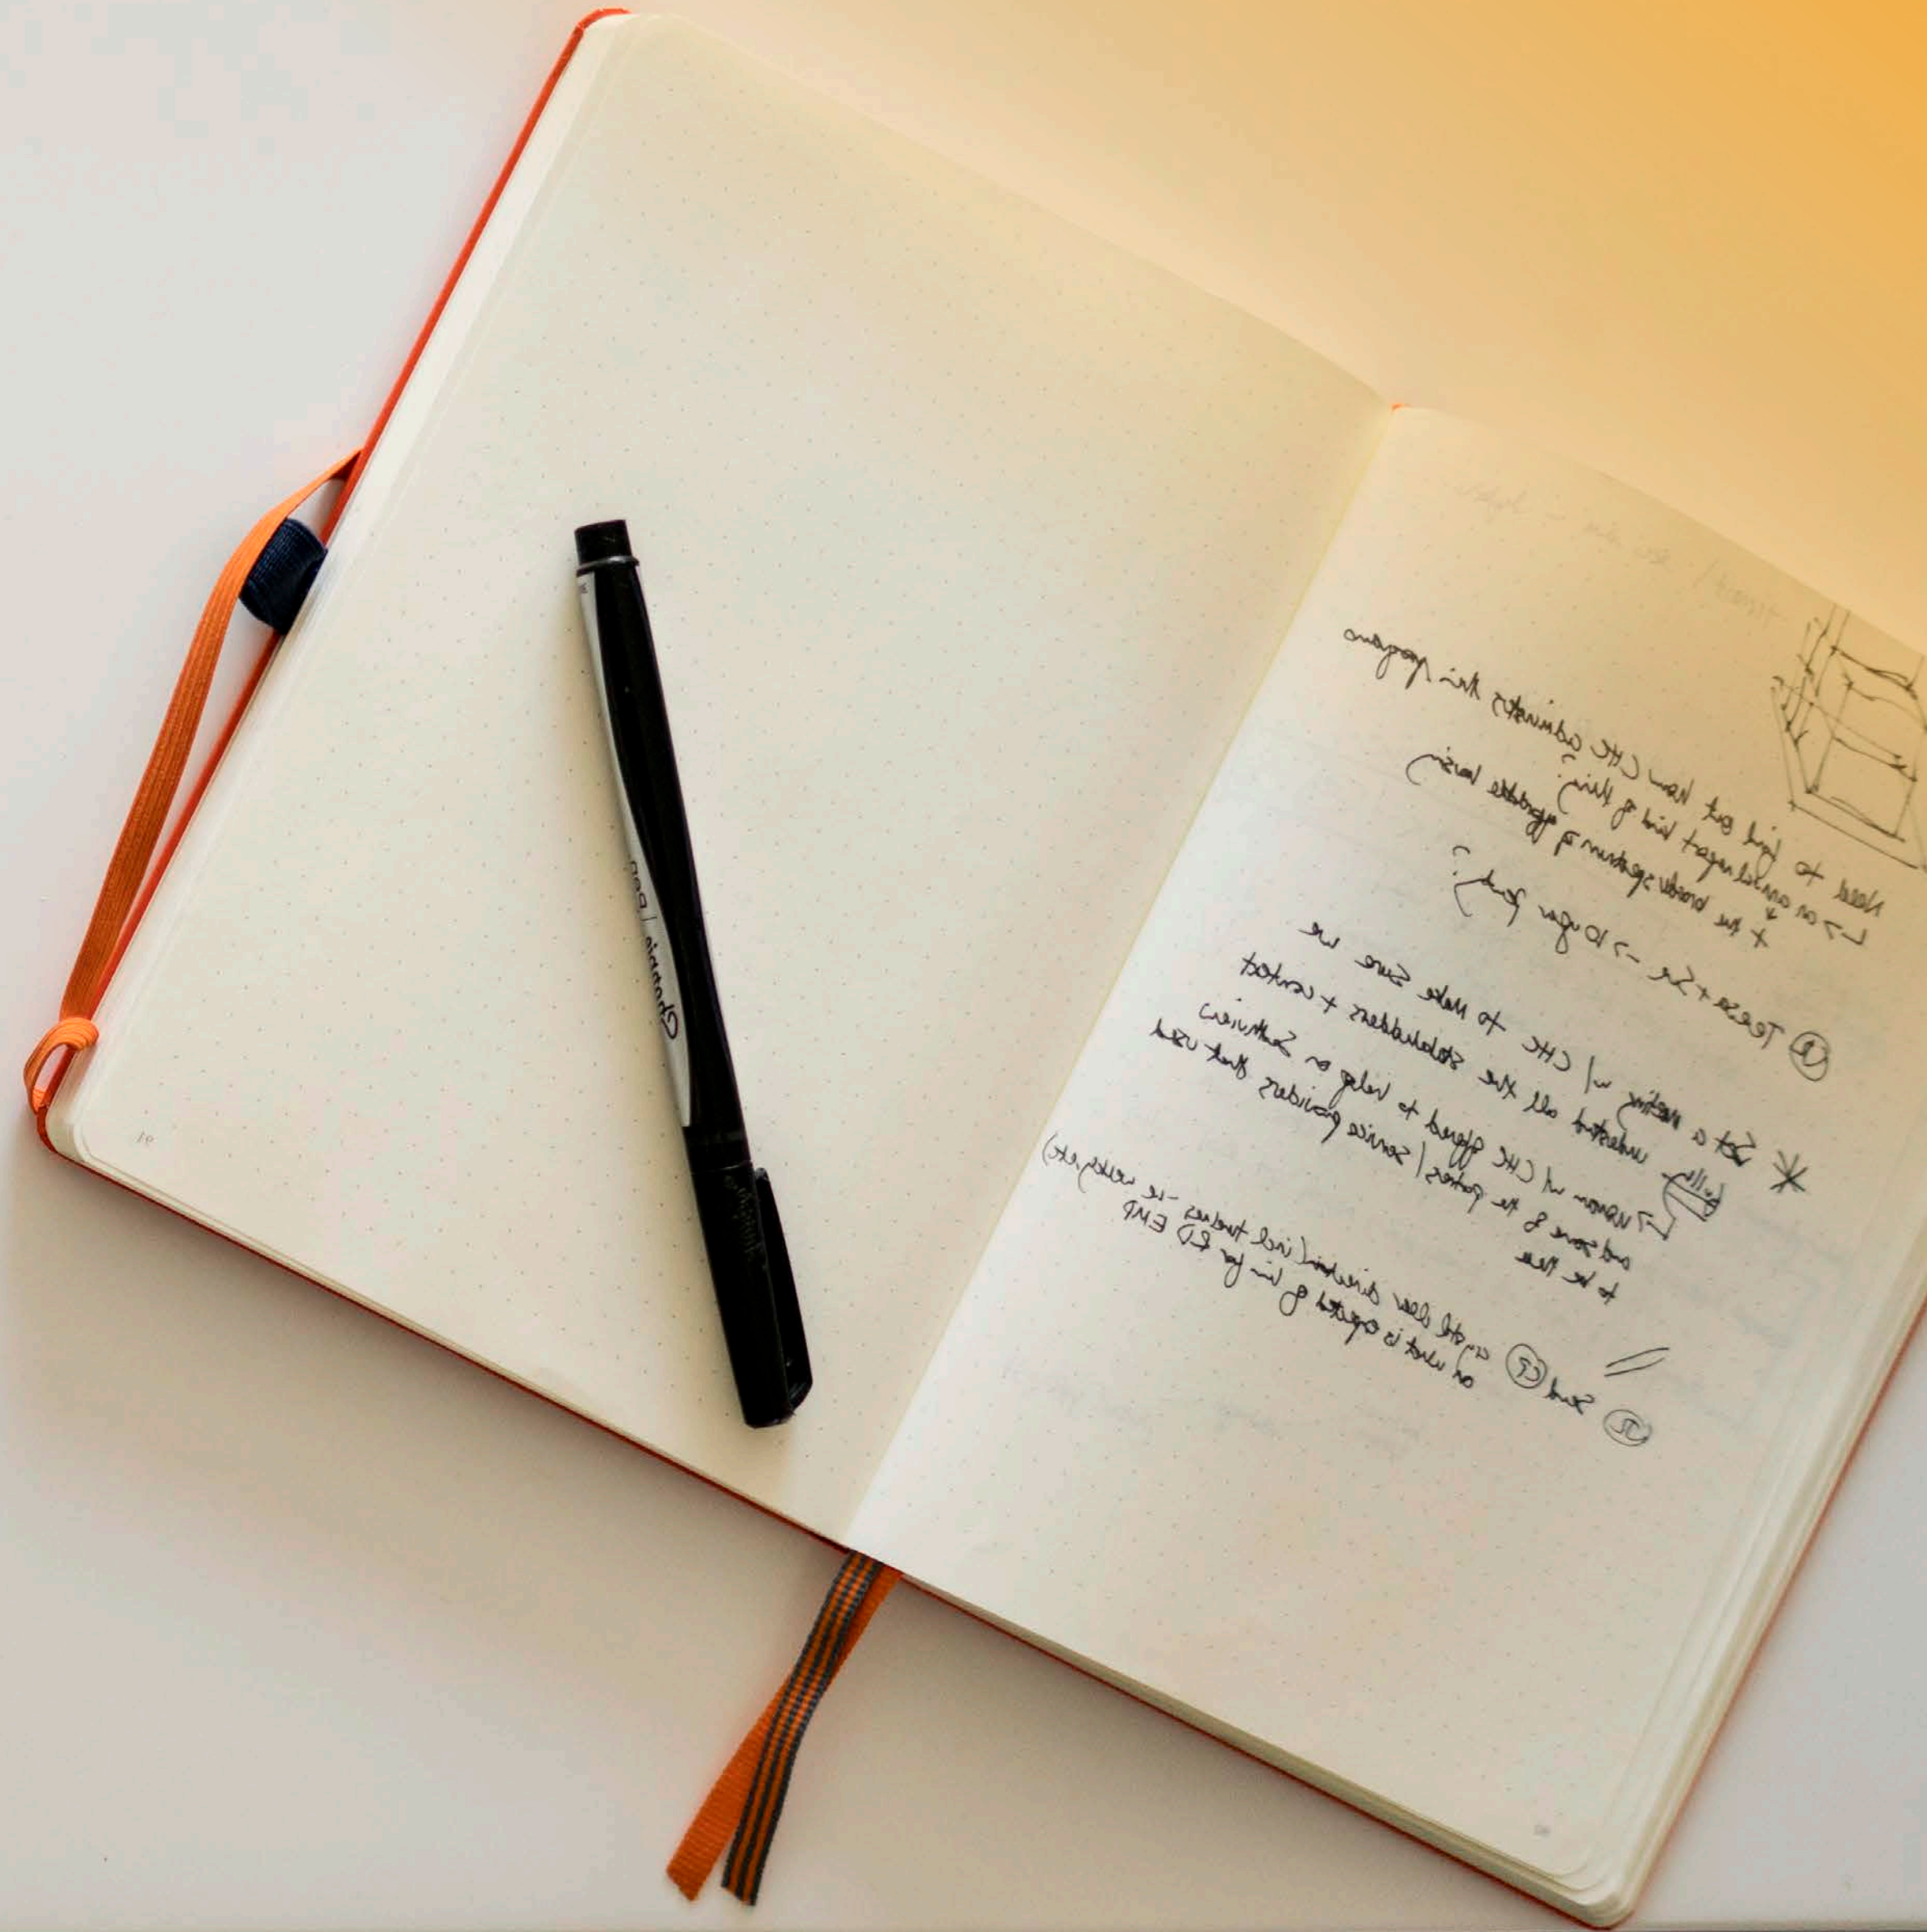 Need to find out how CHC administers their programs
↳ an annual report kind of thing?
+ the broader spectrum of affordable housing
Teresa + Sue -> 10 year party?
* Set a meeting w/ CHC to make sure we
fully understand all the stakeholders + context
woman w/ CHC offered to help on Southview
and some of the parties / service providers that used
to be there
JC Send CP crystal clear direction (incl timelines - ie weekly, etc)
on what is expected of him for ED EMP
Sharpie | pen
91
90